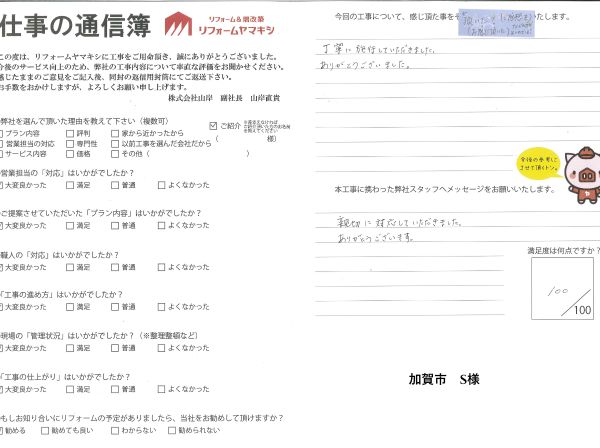 仕事の通信簿
リフォーム＆増改築
リフォームヤマキシ
この度は、リフォームヤマキシに工事をご用命頂き、誠にありがとうございました。
今後のサービス向上のため、弊社の工事内容について率直な評価をお聞かせください。
感じたままのご意見をご記入後、同封の返信用封筒にてご返送下さい。
お手数をおかけしますが、よろしくお願い申し上げます。
株式会社山岸　副社長　山岸直貴
弊社を選んで頂いた理由を教えて下さい（複数可）
プラン内容 評判 家から近かったから ご紹介
営業担当の対応 専門性 以前工事を選んだ会社だから （ 様）
サービス内容 価格 その他（ ）
営業担当の「対応」はいかがでしたか？
大変良かった 満足 普通 よくなかった
ご提案させていただいた「プラン内容」はいかがでしたか？
大変良かった 満足 普通 よくなかった
職人の「対応」はいかがでしたか？
大変良かった 満足 普通 よくなかった
「工事の進め方」はいかがでしたか？
大変良かった 満足 普通 よくなかった
現場の「管理状況」はいかがでしたか？（※整理整頓など）
大変良かった 満足 普通 よくなかった
「工事の仕上がり」はいかがでしたか？
大変良かった 満足 普通 よくなかった
もしお知り合いにリフォームの予定がありましたら、当社をお勧めして頂けますか？
勧める 勧めても良い わからない 勧められない
今回の工事について、感じ頂た事を
いたします。
丁寧に施行していただきました。
ありがとうございました。
今後の参考に
させて頂くトン。
本工事に携わった弊社スタッフへメッセージをお願いいたします。
親切に対応していただきました。
ありがとうございます。
満足度は何点ですか？
100
/100
加賀市　S様